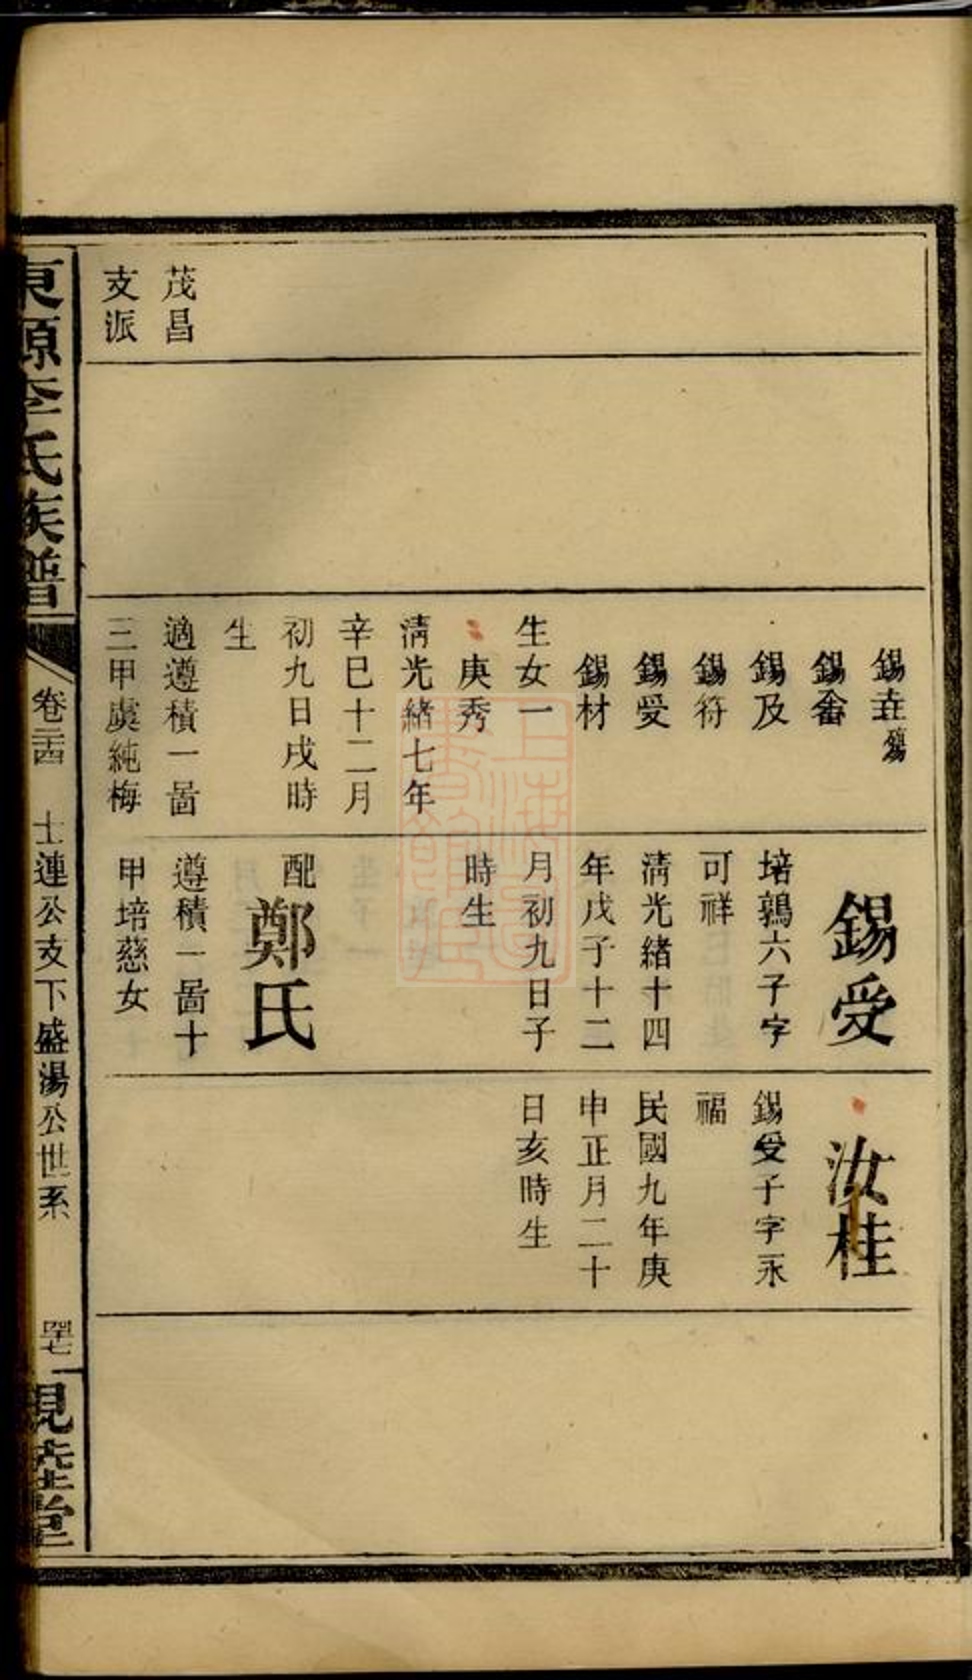 錫壵殤
錫畬
錫及
錫符
錫受
錫材
生女一
庚秀
清光緒七年
辛巳十二月
初九日戌時
生
適遵積一啚
三甲虞純梅
錫受
培鶉六子字
可祥
清光緒十四
年戊子十二
月初九日子
時生
配鄭氏
遵積一啚十
甲培慈女
汝桂
錫受子字永
福
民國九年庚
申正月二十
日亥時生
茂昌
支派
東源李氏族譜
卷二十四
士連公支下盛湯公世系
四十七
見先堂
上海圖書館藏